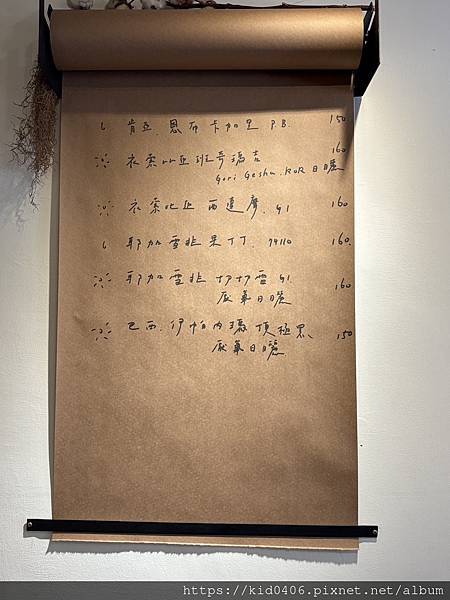 肯亞.恩布卡加里 P.B. 150
衣索比亞班奇瑪吉 160
Gori.Gesha.KoR 日曬
衣索比亞 西達摩.G1 160
耶加雪菲果丁丁.74110 160.
耶加雪菲 切切雪 G1. 160
厭氧日曬
巴西.伊帕內瑪頂極黑、 150
厭氧日曬
https://kid0406.pixnet.net/album